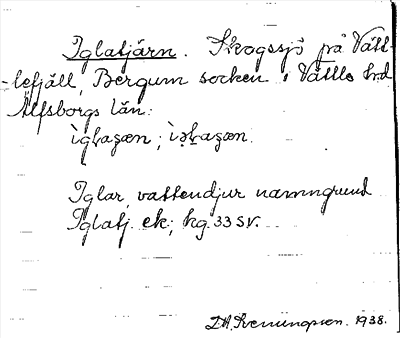 Iglatjärn. Skogssjö på Vätt-
-lefjäll, Bergum socken, Vättle hrd
Älfsborgs län:

Iglar, vattendjur namngrund
Iglatj. ek; kg. 33 SV.
D.A. Svenungsson. 1938.